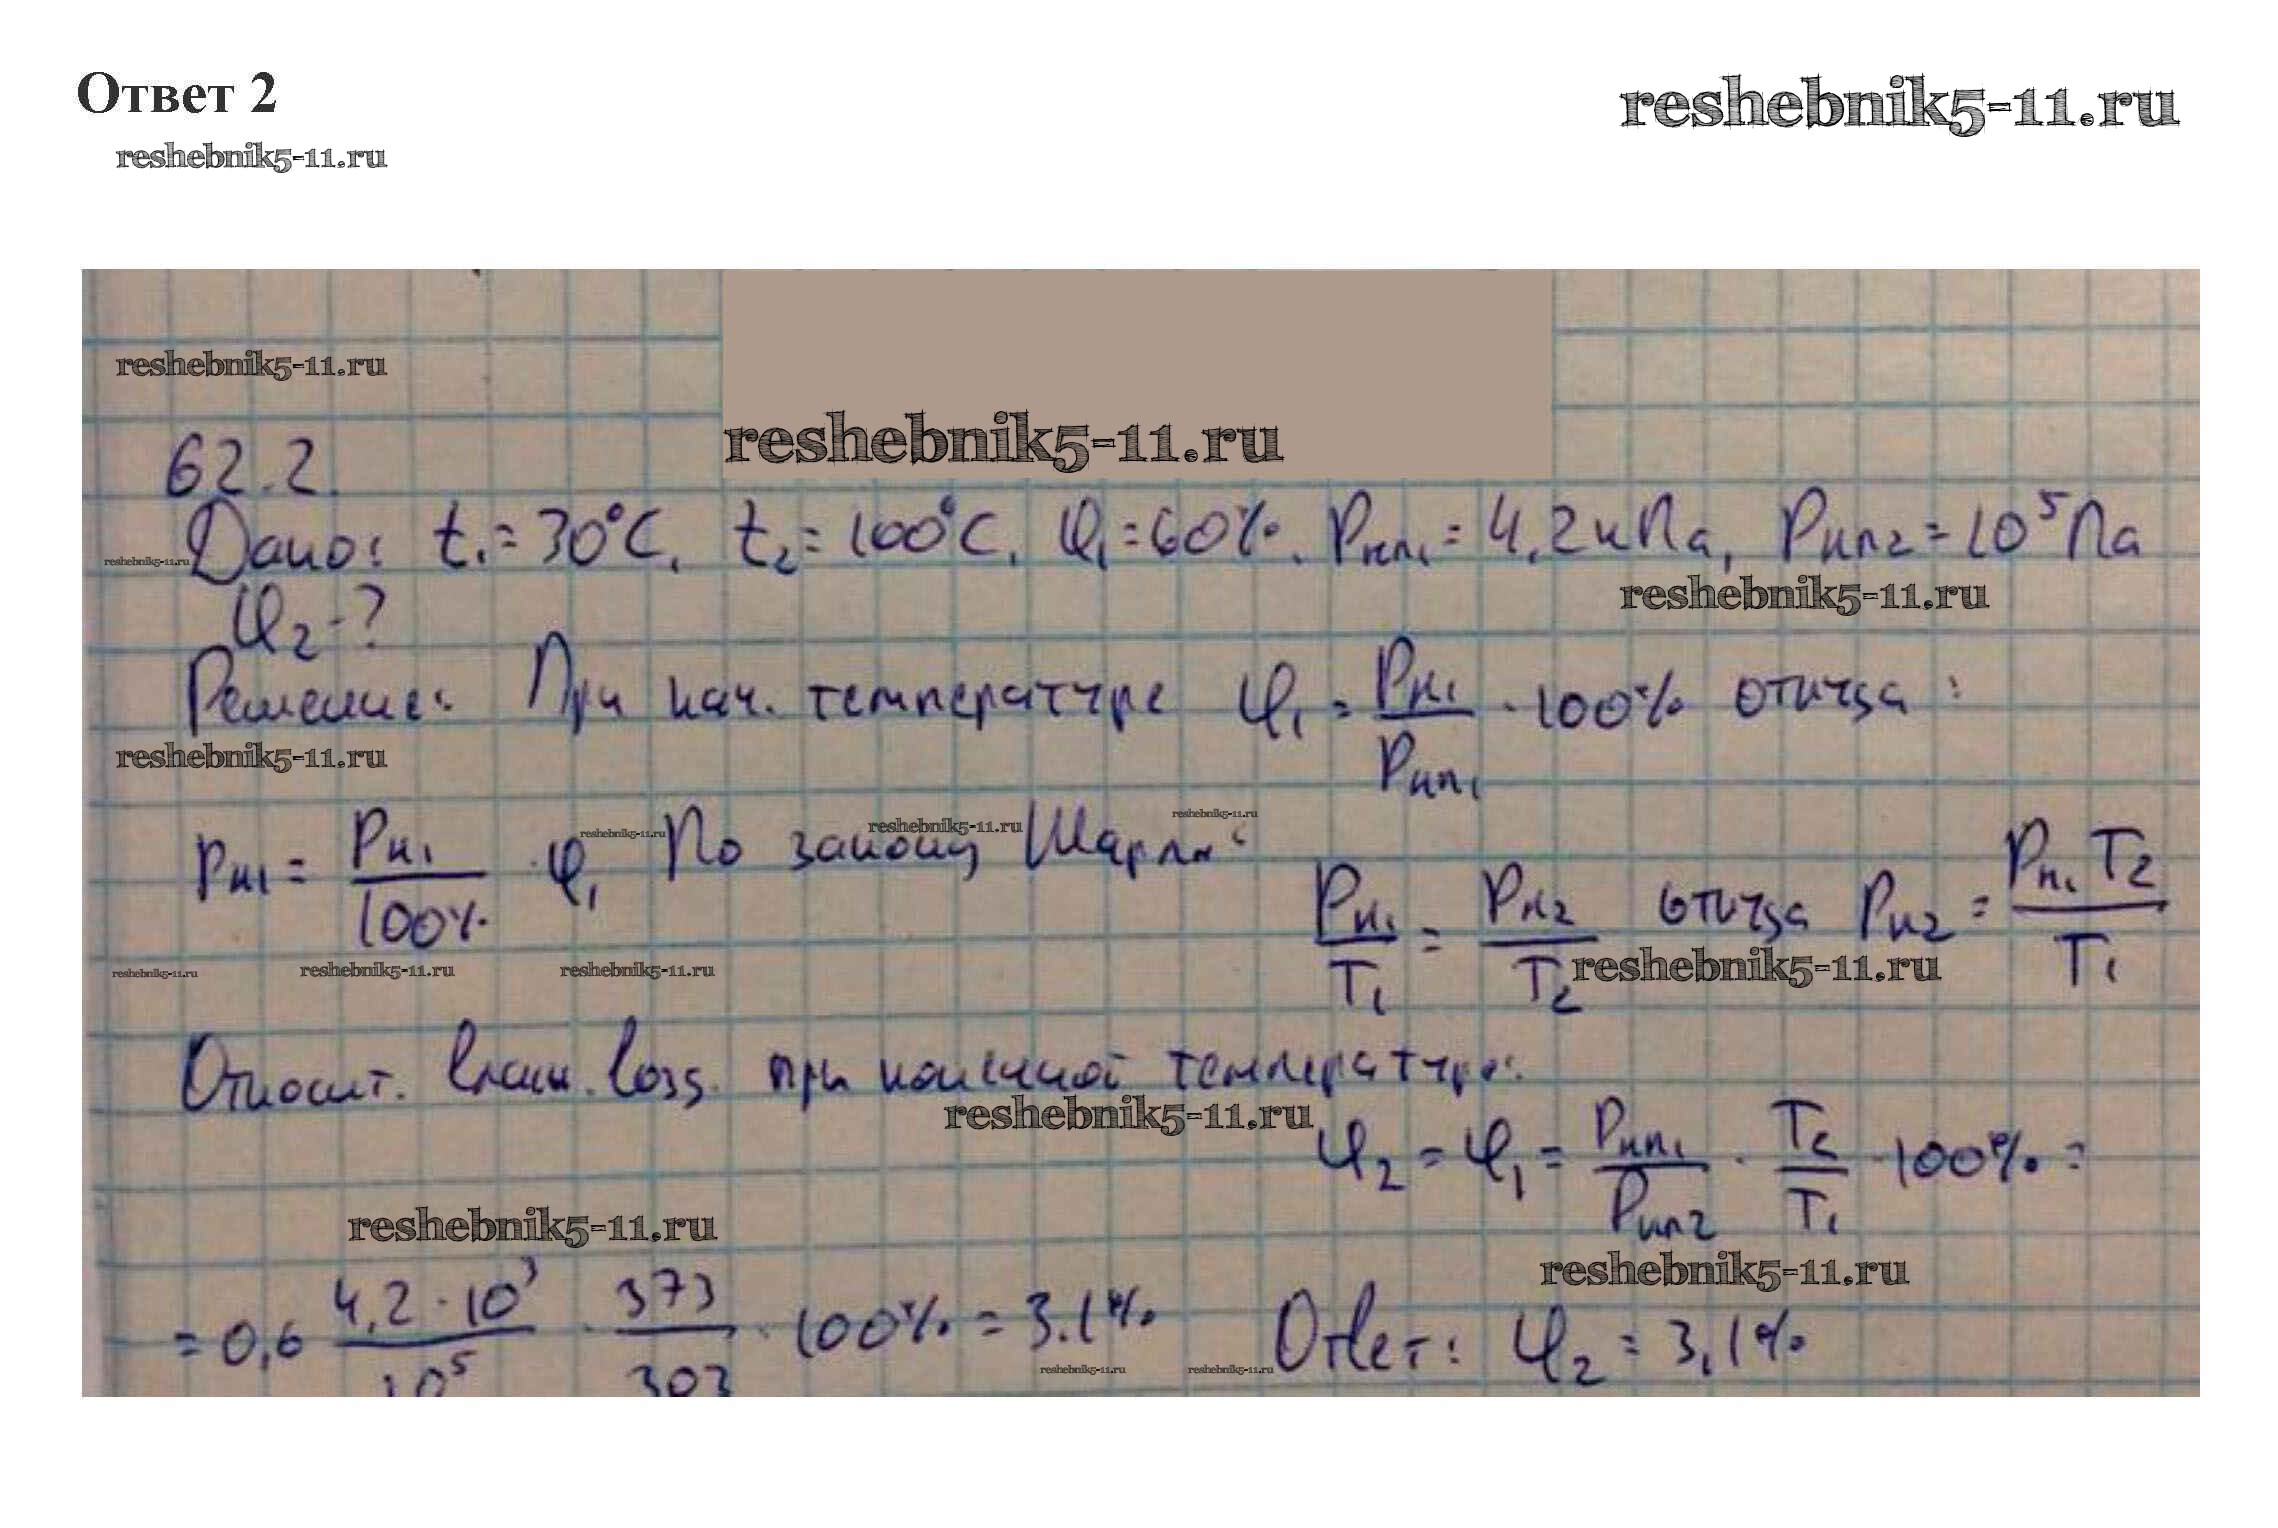 Ответ 2
reshebnik5-11.ru
reshebnik5-11.ru
reshebnik5-11.ru
reshebnik5-11.ru
62.2.
Дано: t₁ = 30°C, t₂ = 100°C, φ₁ = 60%. Pнп₁ = 4,2 кПа, Pнп2 = 10⁵ Па
reshebnik5-11.ru
reshebnik5-11.ru
φ₂ - ?
Решение: При нач. температуре φ₁ = Pн₁ / Pнп₁ · 100% откуда:
reshebnik5-11.ru
reshebnik5-11.ru
reshebnik5-11.ru
reshebnik5-11.ru
Pн1 = Pн₁ / 100% · φ₁ По закону Шарля: Pн₁ / T₁ = Pн2 / T₂ откуда Pн2 = Pн₁ T₂ / T₁
reshebnik5-11.ru
reshebnik5-11.ru
reshebnik5-11.ru
reshebnik5-11.ru
Относит. влаж. возд. при конечной температуре:
reshebnik5-11.ru
φ₂ = φ₁ = Pнп₁ / Pнп2 · T₂ / T₁ · 100% =
reshebnik5-11.ru
reshebnik5-11.ru
= 0,6 4,2 · 10³ / 10⁵ · 373 / 303 · 100% = 3.1% Ответ: φ₂ = 3,1%
reshebnik5-11.ru
reshebnik5-11.ru